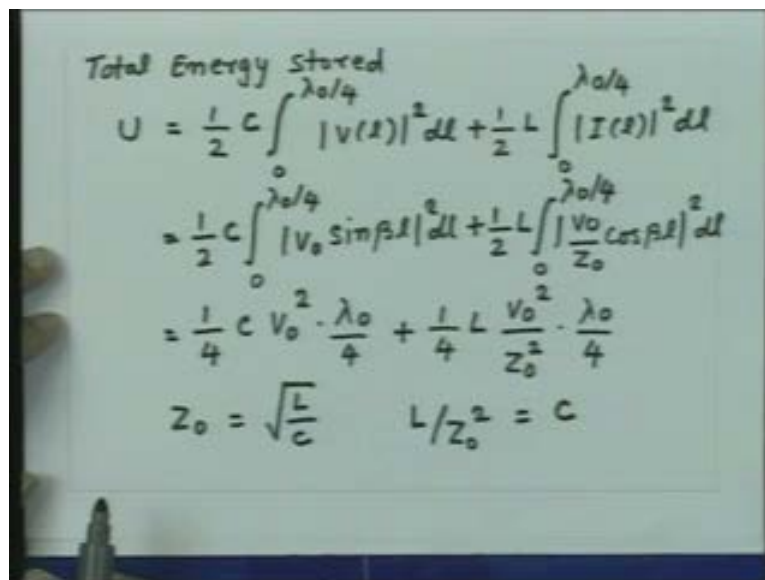 Total Energy Stored
U = 1/2 C ∫₀^{λ0/4} |V(l)|² dl + 1/2 L ∫₀^{λ0/4} |I(l)|² dl
= 1/2 C ∫₀^{λ0/4} |V₀ sinβl|² dl + 1/2 L ∫₀^{λ0/4} |V₀/Z₀ cosβl|² dl
= 1/4 C V₀² · λ0/4 + 1/4 L V₀²/Z₀² · λ0/4
Z₀ = √(L/C) L/Z₀² = C